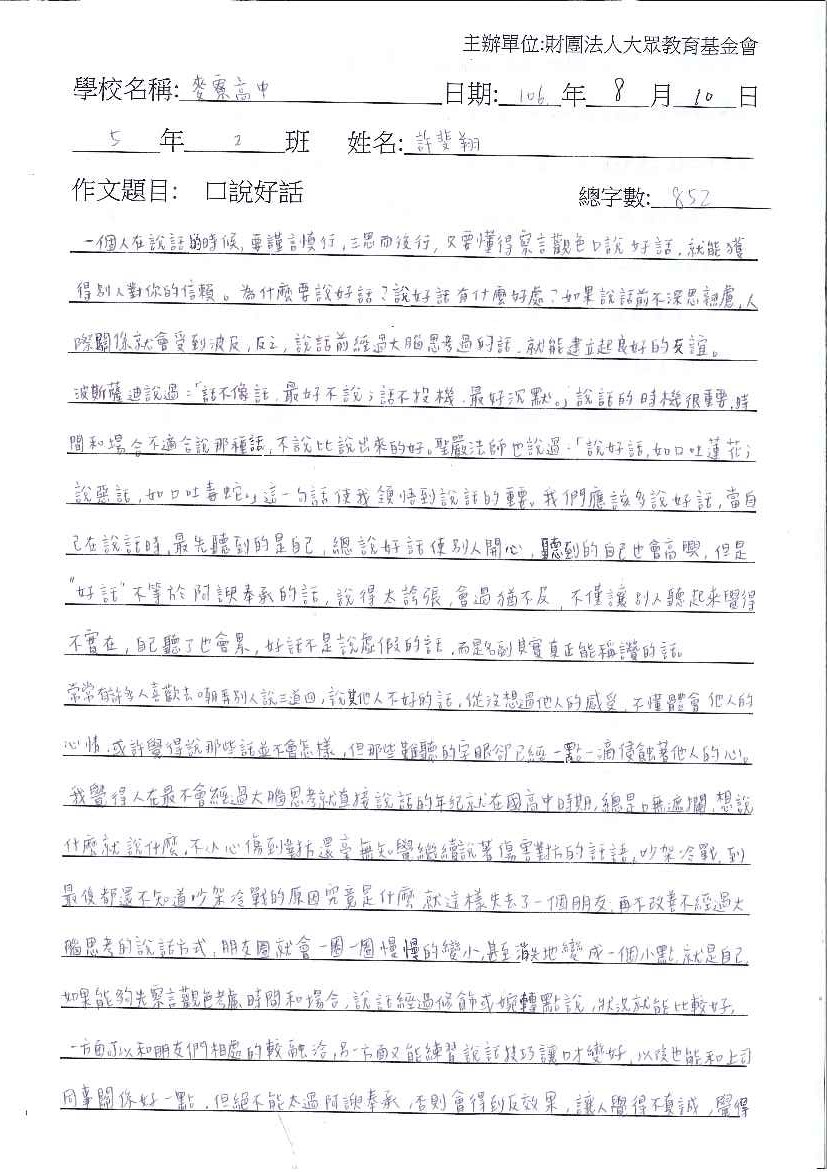 主辦單位:財團法人大眾教育基金會
學校名稱: 麥寮高中 日期: 106 年 8 月 10 日
5 年 2 班 姓名: 許斐翔
作文題目: 口說好話 總字數: 852
一個人在說話的時候,要謹言慎行,三思而後行,又要懂得察言觀色口說好話,就能獲
得別人對你的信賴。為什麼要說好話?說好話有什麼好處?如果說話前不深思熟慮,人
際關係就會受到波及,反之,說話前經過大腦思考過的話,就能建立起良好的友誼。
波斯薩迪說過:「話不像話,最好不說;話不投機,最好沉默。」說話的時機很重要,時
間和場合不適合說那種話,不說比說出來的好。聖嚴法師也說過:「說好話,如口吐蓮花;
說惡話,如口吐毒蛇。」這一句話使我領悟到說話的重要。我們應該多說好話,當自
己在說話時,最先聽到的是自己,總說好話使別人開心,聽到的自己也會高興,但是
"好話"不等於阿諛奉承的話,說得太誇張,會過猶不及,不僅讓別人聽起來覺得
不實在,自己聽了也會累,好話不是說虛假的話,而是名副其實真正能稱讚的話。
常常有許多人喜歡去嘲弄別人說三道四,說其他人不好的話,從沒想過他人的感受,不懂體會他人的
心情,或許覺得說那些話並不會怎樣,但那些難聽的字眼卻已經一點一滴侵蝕著他人的心。
我覺得人在最不會經過大腦思考就直接說話的年紀就在國高中時期,總是口無遮攔,想說
什麼就說什麼,不小心傷到對方還毫無知覺繼續說著傷害對方的話語,吵架冷戰,到
最後都還不知道吵架冷戰的原因究竟是什麼,就這樣失去了一個朋友,再不改善不經過大
腦思考的說話方式,朋友圈就會一圈一圈慢慢的變小,甚至消失地變成一個小點,就是自己,
如果能夠先察言觀色考慮時間和場合,說話經過修飾或婉轉點說,狀況就能比較好,
一方面可以和朋友們相處的較融洽,另一方面又能練習說話技巧讓口才變好,以後也能和上司
同事關係好一點,但絕不能太過阿諛奉承,否則會得到反效果,讓人覺得不真誠,覺得